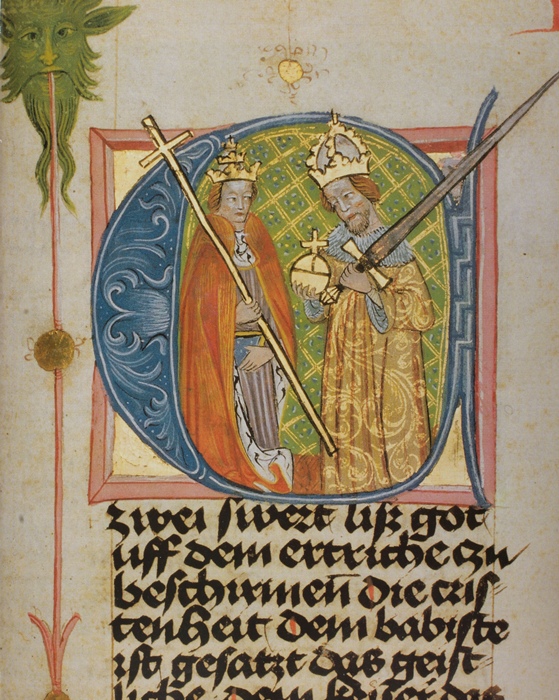 zwei swert lisz got
uff dem ertriche zu
beschirmen die cris-
tenheit dem babiste
ist gesatzt das geist-
liche dem